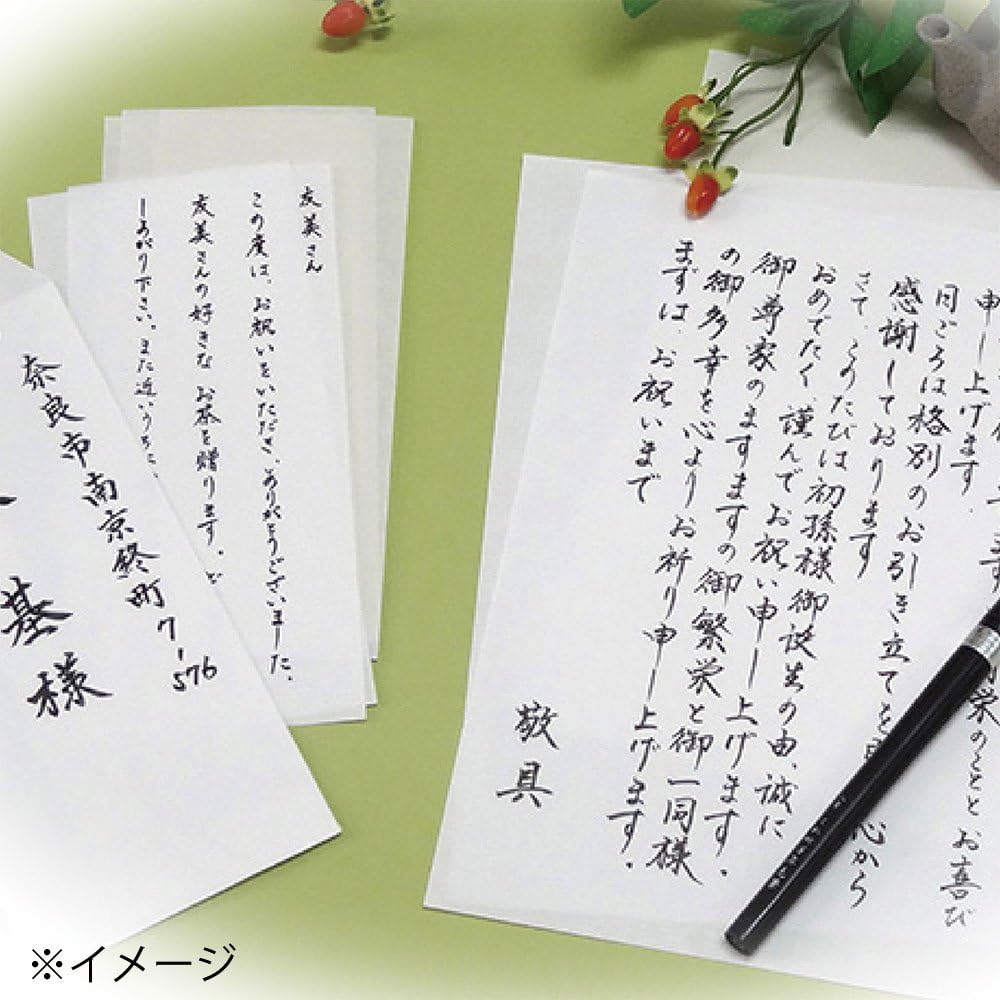 奈良市南京終町7-576
基様
友美さん
この度は、お祝いをいただき、ありがとうございました。
友美さんの好きなお茶を贈ります。ど
しあがり下さい。また近いうちに、
栄のこととお喜び
申し上げます
日ごろは格別のお引き立てを 心から
感謝しております
さて、このたびは初孫様御誕生の由、誠に
おめでたく、謹んでお祝い申し上げます。
御尊家のますますの御繁栄と御一同様
の御多幸を心よりお祈り申し上げます。
まずは、お祝いまで
敬具
※イメージ